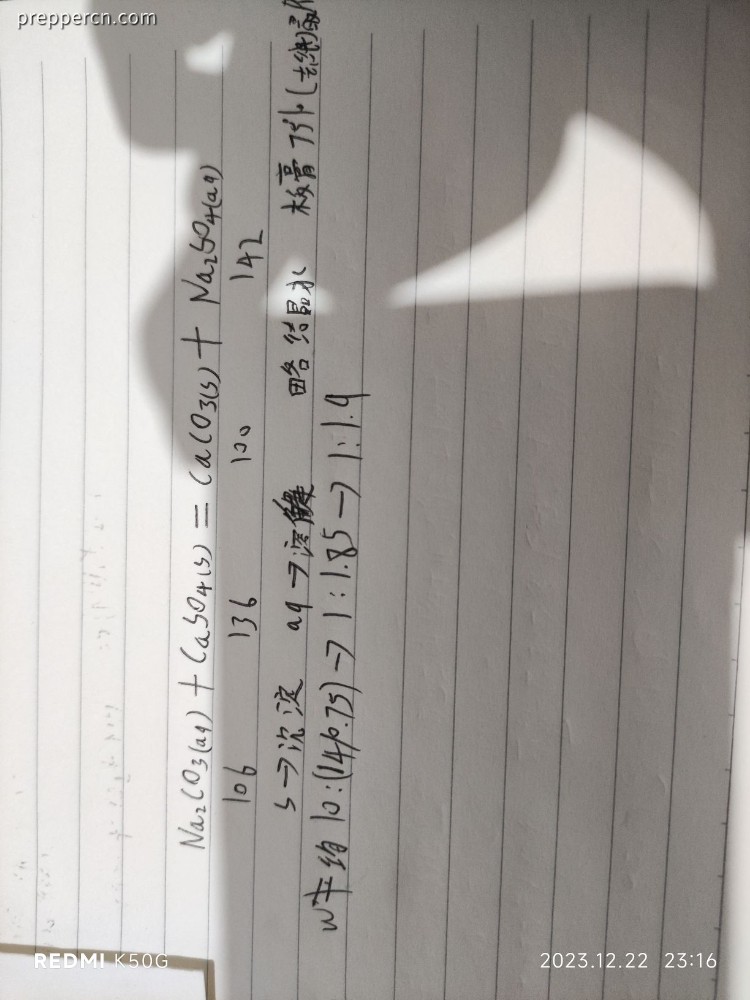 preppercn.com
Na₂CO₃(aq) + CaSO₄(s) = CaCO₃(s) + Na₂SO₄(aq)
106 136 100 142
s→沉淀 aq→溶解 略结晶水 板膏75% (去纸)
W 约 10:(14/0.75)→1:1.85→1:1.9
REDMI K50G
2023.12.22 23:16